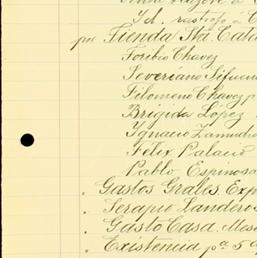 Yd. rastrojo a
por Tienda Sta Cata
Toribio Chavez
Severiano Sifuen
Filomeno Chavez p
Brigida Lopez
Ygnacio Zamudio
Felix Palacio
Pablo Espinosa
Gastos Grales. Exp
Serapio Landeros
Gasto Casa. Mes
Existencia pa 5